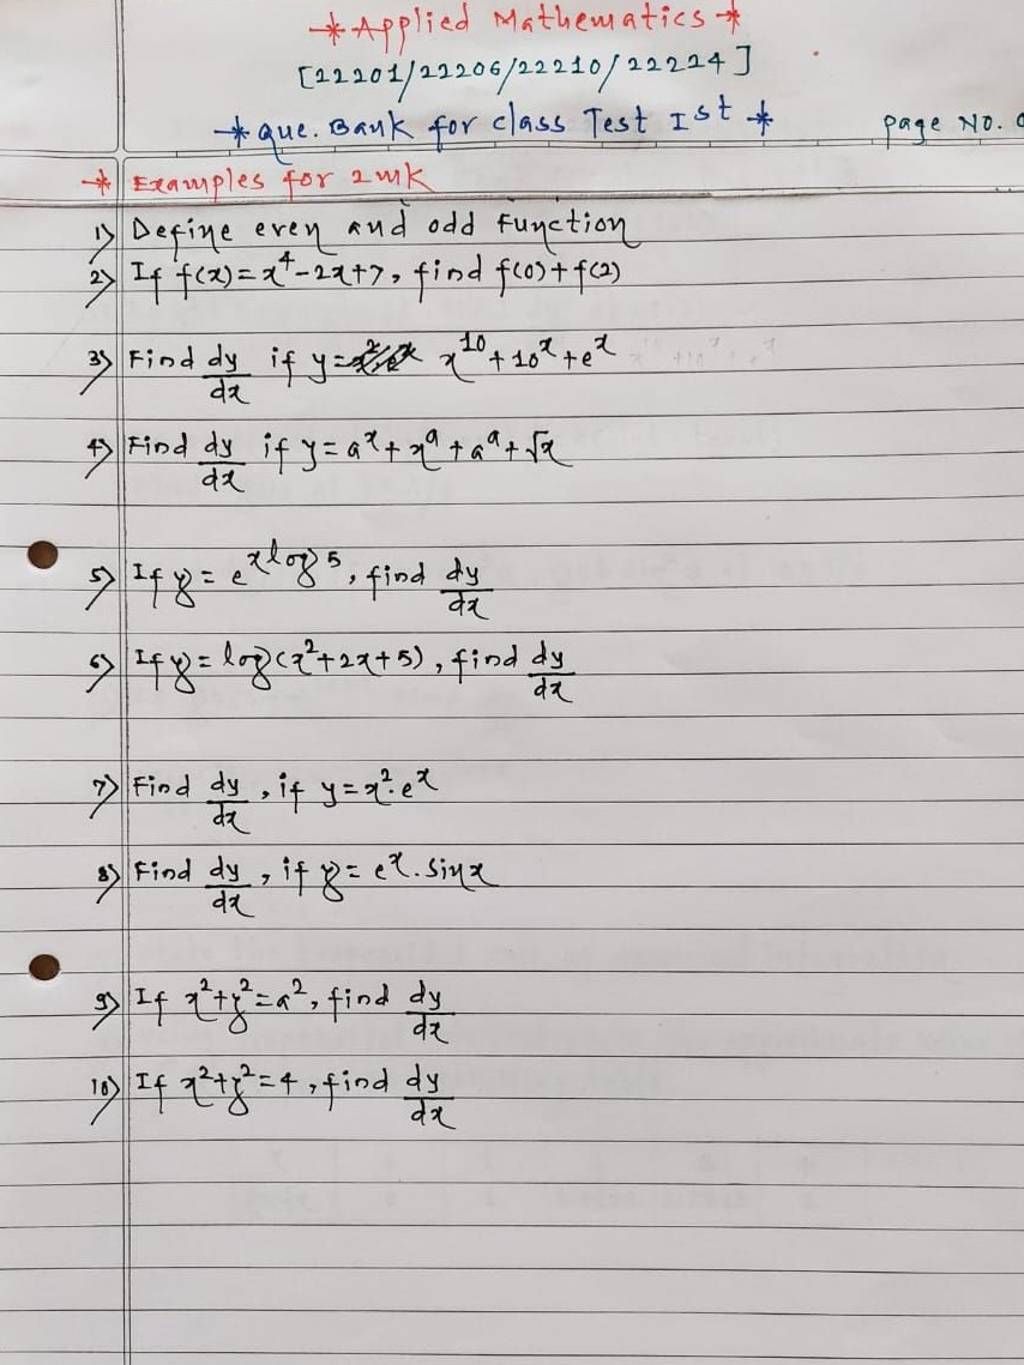 * Applied Mathematics *
[22201/22206/22210/22224]
* que. Bank for class Test Ist *
page No.
* Examples for 2mk
1) Define even and odd function
2) If f(x)=x⁴-2x+7, find f(0)+f(2)
3) Find dy/dx if y= x¹⁰+10ˣ+eˣ
4) Find dy/dx if y=aˣ+xᵃ+aᵃ+√x
5) If y= e^xlog5, find dy/dx
6) If y= log(x²+2x+5), find dy/dx
7) Find dy/dx, if y=x².eˣ
8) Find dy/dx, if y= eˣ.sinx
9) If x²+y²=a², find dy/dx
10) If x²+y²=4, find dy/dx